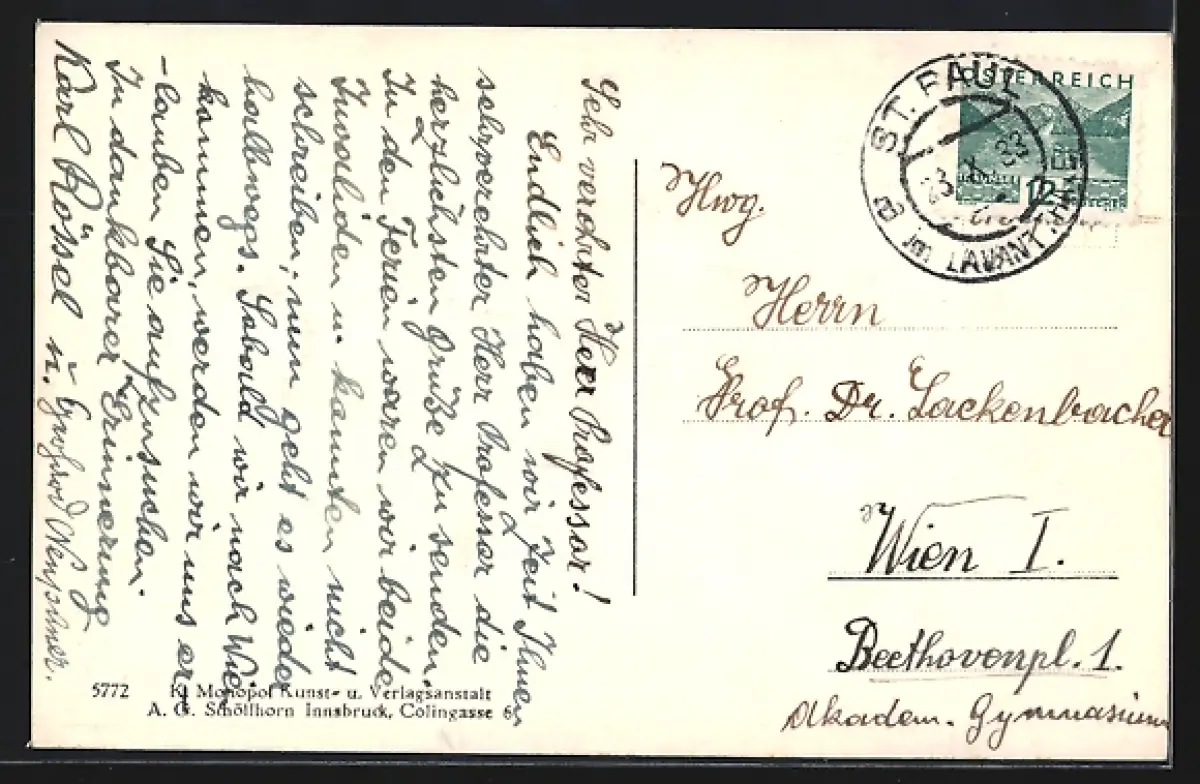 Sehr verehrter Herr Professor!
Endlich haben wir Zeit Ihnen
sehrverehrter Herr Professor die
herzlichsten Grüße zu senden.
In den Ferien waren wir beide
Invaliden u. kannten nicht
schreiben; nun geht es wieder
halbwegs. Sobald wir nach Wien
kommen, werden wir uns er-
-lauben Sie aufzusuchen.
In dankbarer Erinnerung
Karl Rössel u.
5772 K. Monopol Kunst- u. Verlagsanstalt
A. G. Schöllhorn Innsbruck, Colingasse 6
ÖSTERREICH
12
ST. PAUL
im LAVANT
33
Hwg.
Herrn
Prof. Dr. Lackenbacher
Wien I.
Beethovenpl. 1.
Akadem. Gymnasium